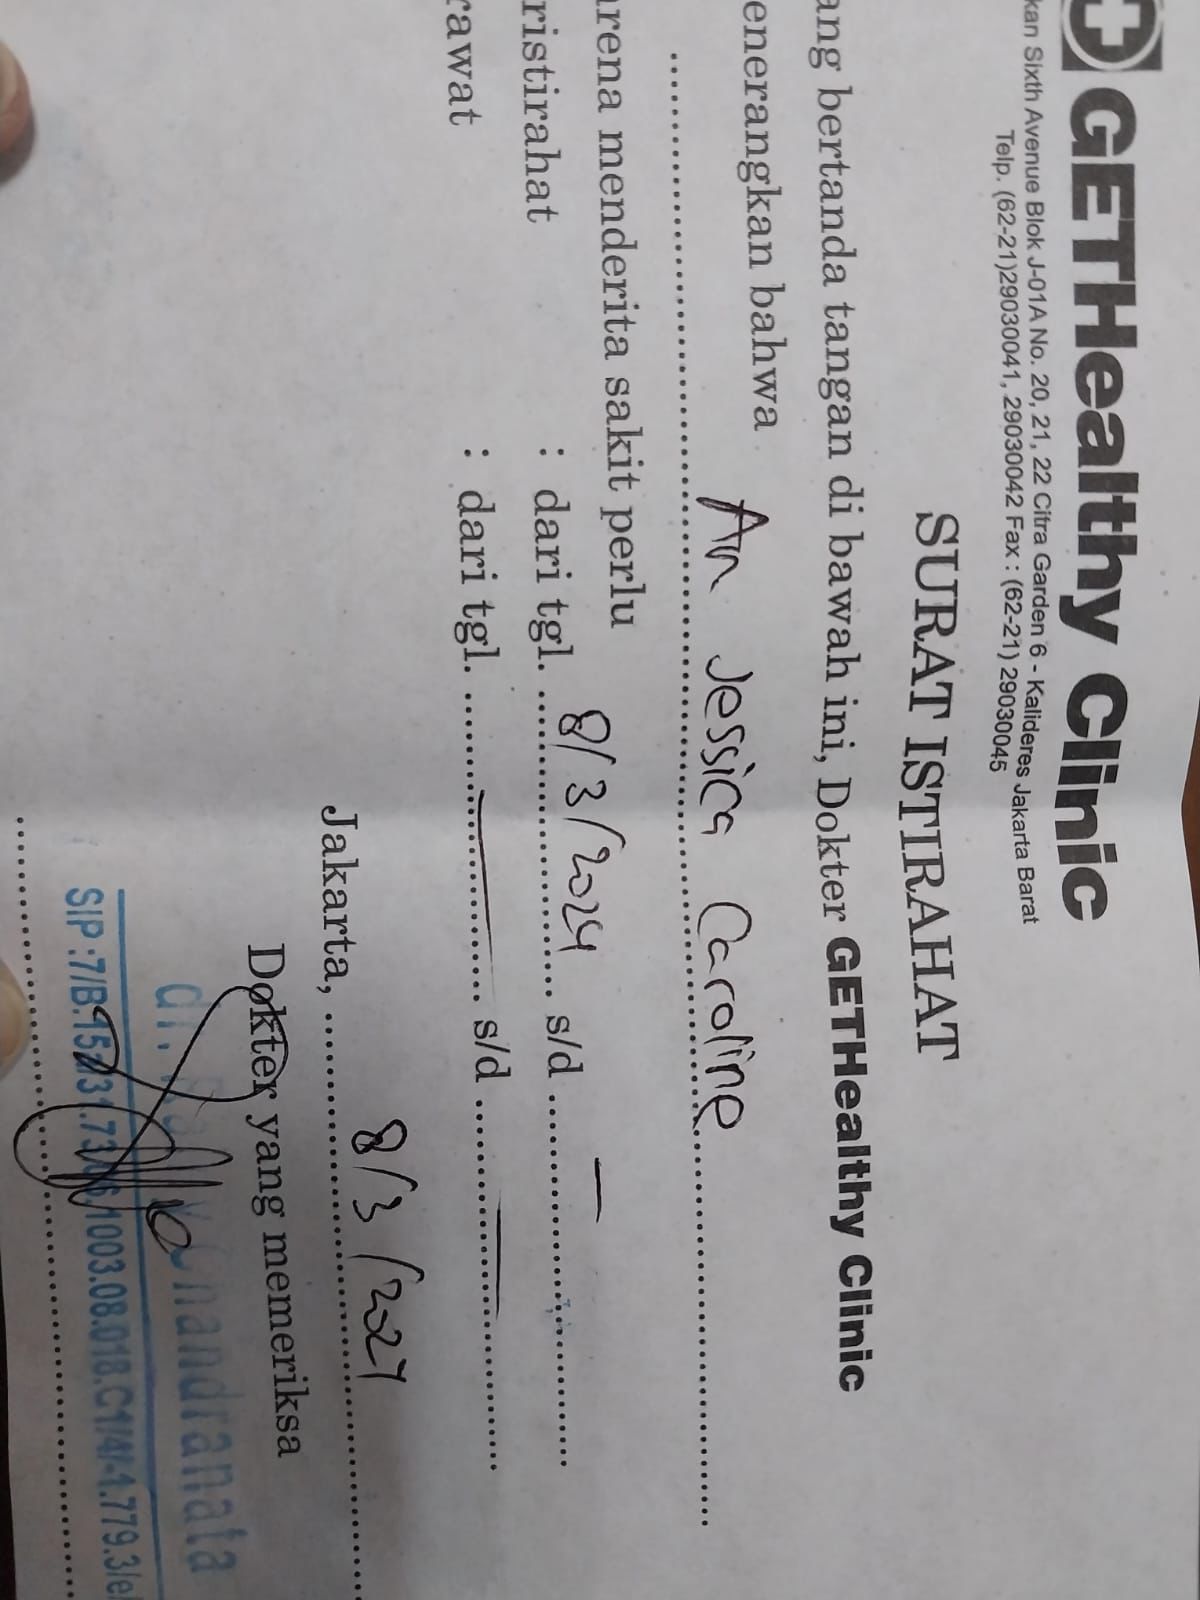 GETHealthy Clinic
kan Sixth Avenue Blok J-01A No. 20, 21, 22 Citra Garden 6 - Kalideres Jakarta Barat
Telp. (62-21)29030041, 29030042 Fax : (62-21) 29030045
SURAT ISTIRAHAT
ang bertanda tangan di bawah ini, Dokter GETHealthy Clinic
enerangkan bahwa
An Jessica Caroline
arena menderita sakit perlu
ristirahat : dari tgl. 8/3/2024 s/d —
rawat : dari tgl. — s/d —
Jakarta, 8/3/2024
Dokter yang memeriksa
dr. nandranata
SIP :7/B.15